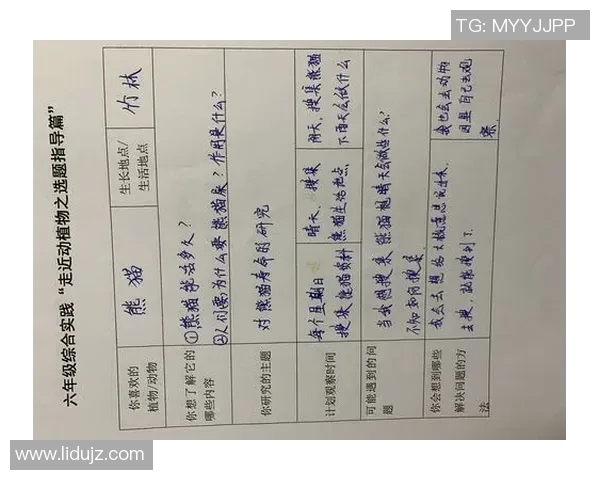 TG: MYYJJPP
六年级综合实践“走近动植物之选题指导篇”
你喜欢的
植物/动物
熊猫
生长地点/
生活地点
竹林
你想了解它的
哪些内容
①熊猫能活多久?
②人们要为什么要熊猫象?作用是什么?
你研究的主题
对熊猫寿命的研究
计划观察时间
每个星期日
搜集熊猫资料
晴天,搜集
熊猫生活地点
阴天,搜集熊猫
下雨天会做什么
可能遇到的问
题
当我想搜集熊猫 晴天会做些什么,
不知如何搜集
你会想到哪些
解决问题的方
法
我会去想给大概意思说出来,
去搜,就能搜到了.
我也会去动物
园里自己去观
察.
www.lidujz.com